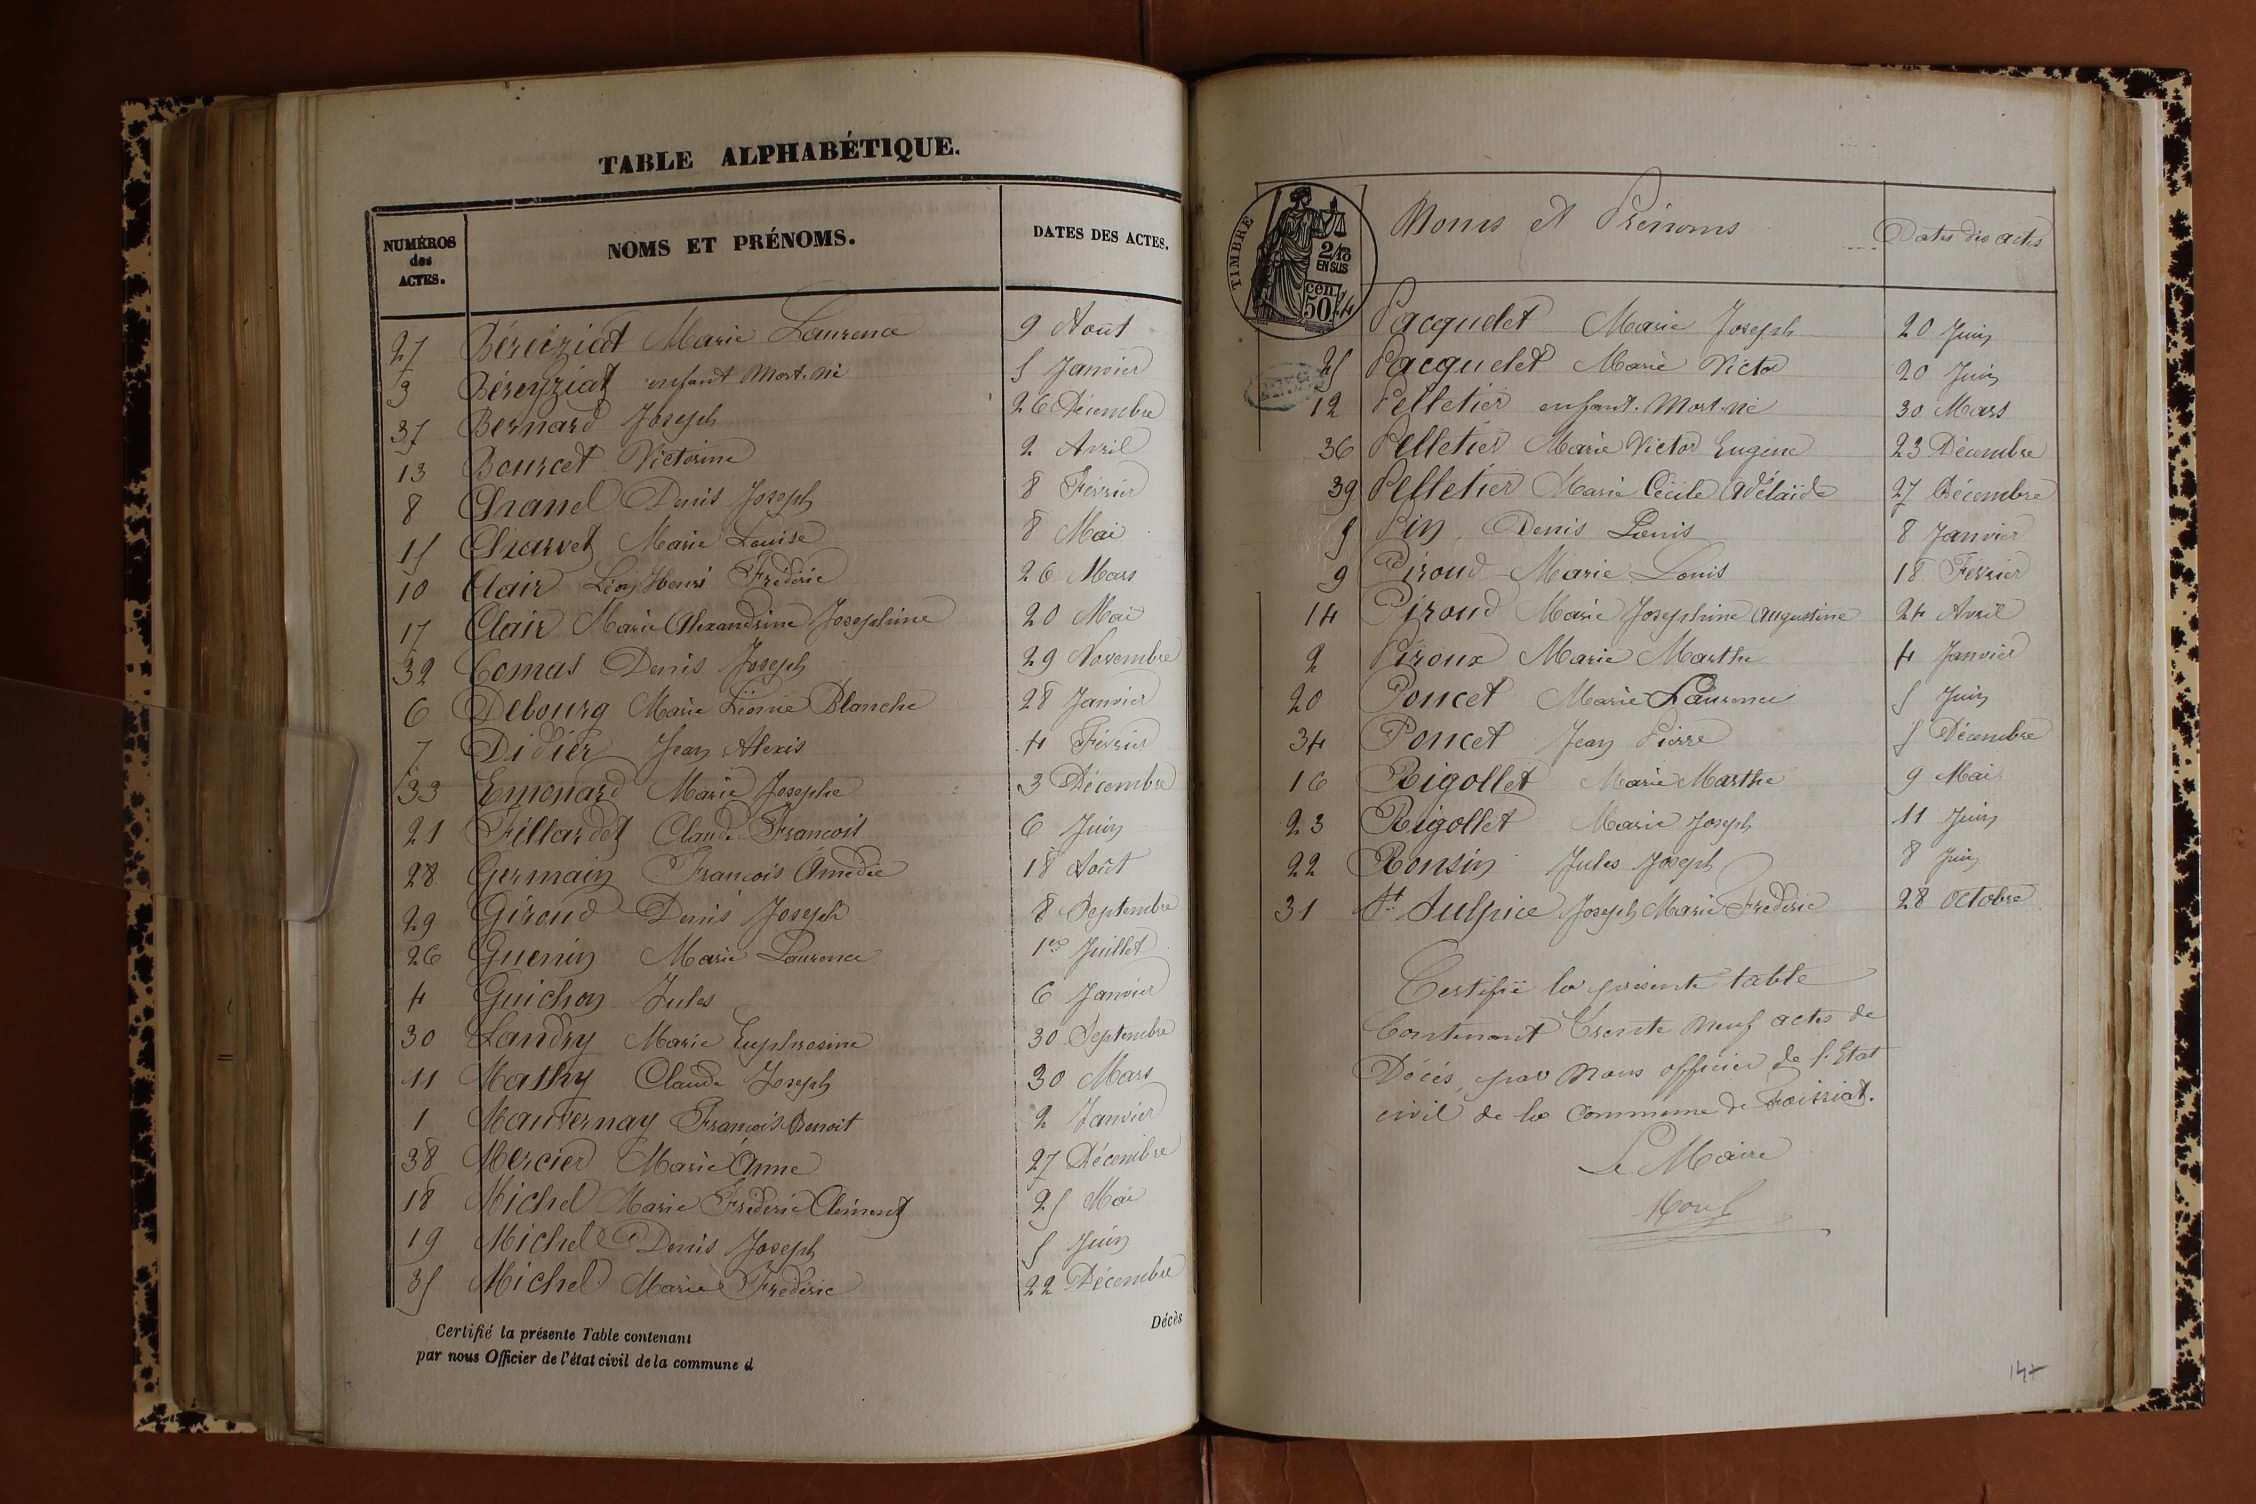 TABLE ALPHABÉTIQUE.
NUMÉROS des ACTES. NOMS ET PRÉNOMS. DATES DES ACTES.
27 Béréziat Marie Laurence 9 Août
3 Béreyziat enfant Mort-né 5 Janvier
37 Bernard Joseph 26 Décembre
13 Bourcet Victorine 2 Avril
8 Chanel Denis Joseph 8 Février
15 Charvet Marie Louise 8 Mai
10 Clair Léon Henri Frédéric 26 Mars
17 Clair Marie Alexandrine Josephine 20 Mai
32 Comas Denis Joseph 29 Novembre
6 Debourg Marie Léonie Blanche 28 Janvier
7 Didier Jean Alexis 4 Février
33 Emonard Marie Josephe 3 Décembre
21 Fillardet Claude François 6 Juin
28 Germain François Amédée 18 Août
29 Giroud Denis Joseph 8 Septembre
26 Guenin Marie Laurence 1er Juillet
4 Guichon Jules 6 Janvier
30 Landry Marie Euphrosine 30 Septembre
11 Mathy Claude Joseph 30 Mars
1 Mauvernay François Benoit 2 Janvier
38 Mercier Marie Anne 27 Décembre
18 Michel Marie Frédéric Clément 25 Mai
19 Michel Denis Joseph 5 Juin
35 Michel Marie Frédéric 22 Décembre
Certifié la présente Table contenant Décès
par nous Officier de l'état civil de la commune d
TIMBRE
2/10
EN SUS
50 cen
Noms et Prénoms Dates des actes
24 Pacquelet Marie Joseph 20 Juin
25 Pacquelet Marie Victor 20 Juin
12 Pelletier enfant Mort-né 30 Mars
36 Pelletier Marie Victor Eugène 23 Décembre
39 Pelletier Marie Cécile Adélaïde 27 Décembre
5 Pin Denis Louis 8 Janvier
9 Piroud Marie Louis 18 Fevrier
14 Piroud Marie Josephine Augustine 24 Avril
2 Piroux Marie Marthe 4 Janvier
20 Poncet Marie Laurence 5 Juin
34 Poncet Jean Pierre 5 Décembre
16 Rigollet Marie Marthe 9 Mai
23 Rigollet Marie Joseph 11 Juin
22 Ronsin Jules Joseph 8 Juin
31 St Sulpice Joseph Marie Frédéric 28 Octobre
Certifié la présente table
Contenant Trente neuf actes de
Décès, par nous officier de l'Etat
civil de la commune de Foissiat.
Le Maire